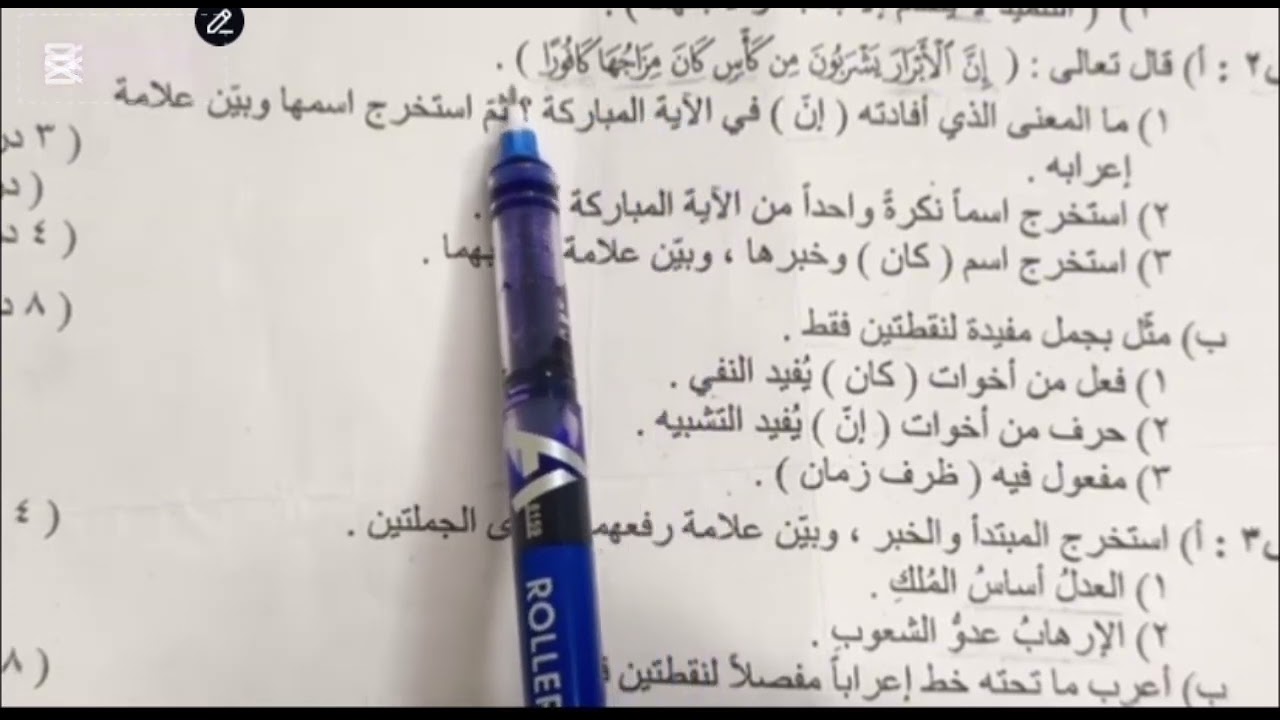 س٢ : أ) قال تعالى : ( إِنَّ الْأَبْرَارَ يَشْرَبُونَ مِن كَأْسٍ كَانَ مِزَاجُهَا كَافُورًا ) .
١) ما المعنى الذي أفادته ( إنّ ) في الآية المباركة ؟ ثمّ استخرج اسمها وبيّن علامة
إعرابه . ( ٣ در
٢) استخرج اسماً نكرةً واحداً من الآية المباركة . ( در
٣) استخرج اسم ( كان ) وخبرها ، وبيّن علامة بهما . ( ٤ د
ب) مثّل بجمل مفيدة لنقطتين فقط . ( ٨ د
١) فعل من أخوات ( كان ) يُفيد النفي .
٢) حرف من أخوات ( إنّ ) يُفيد التشبيه .
٣) مفعول فيه ( ظرف زمان ) .
س٣ : أ) استخرج المبتدأ والخبر ، وبيّن علامة رفعهم ى الجملتين . ( ٤
١) العدلُ أساسُ المُلكِ .
٢) الإرهابُ عدوُّ الشعوبِ .
ب) أعرب ما تحته خط إعراباً مفصلاً لنقطتين ( ٨
ROLLER